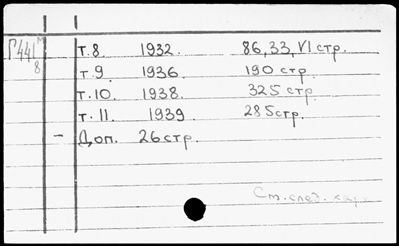 Г441/8 т.8 1932. 86,33,VI стр.
т.9 1936. 190 стр.
т.10. 1938. 325 стр.
т.11. 1939. 285стр.
– Доп. 26стр.
См. след.